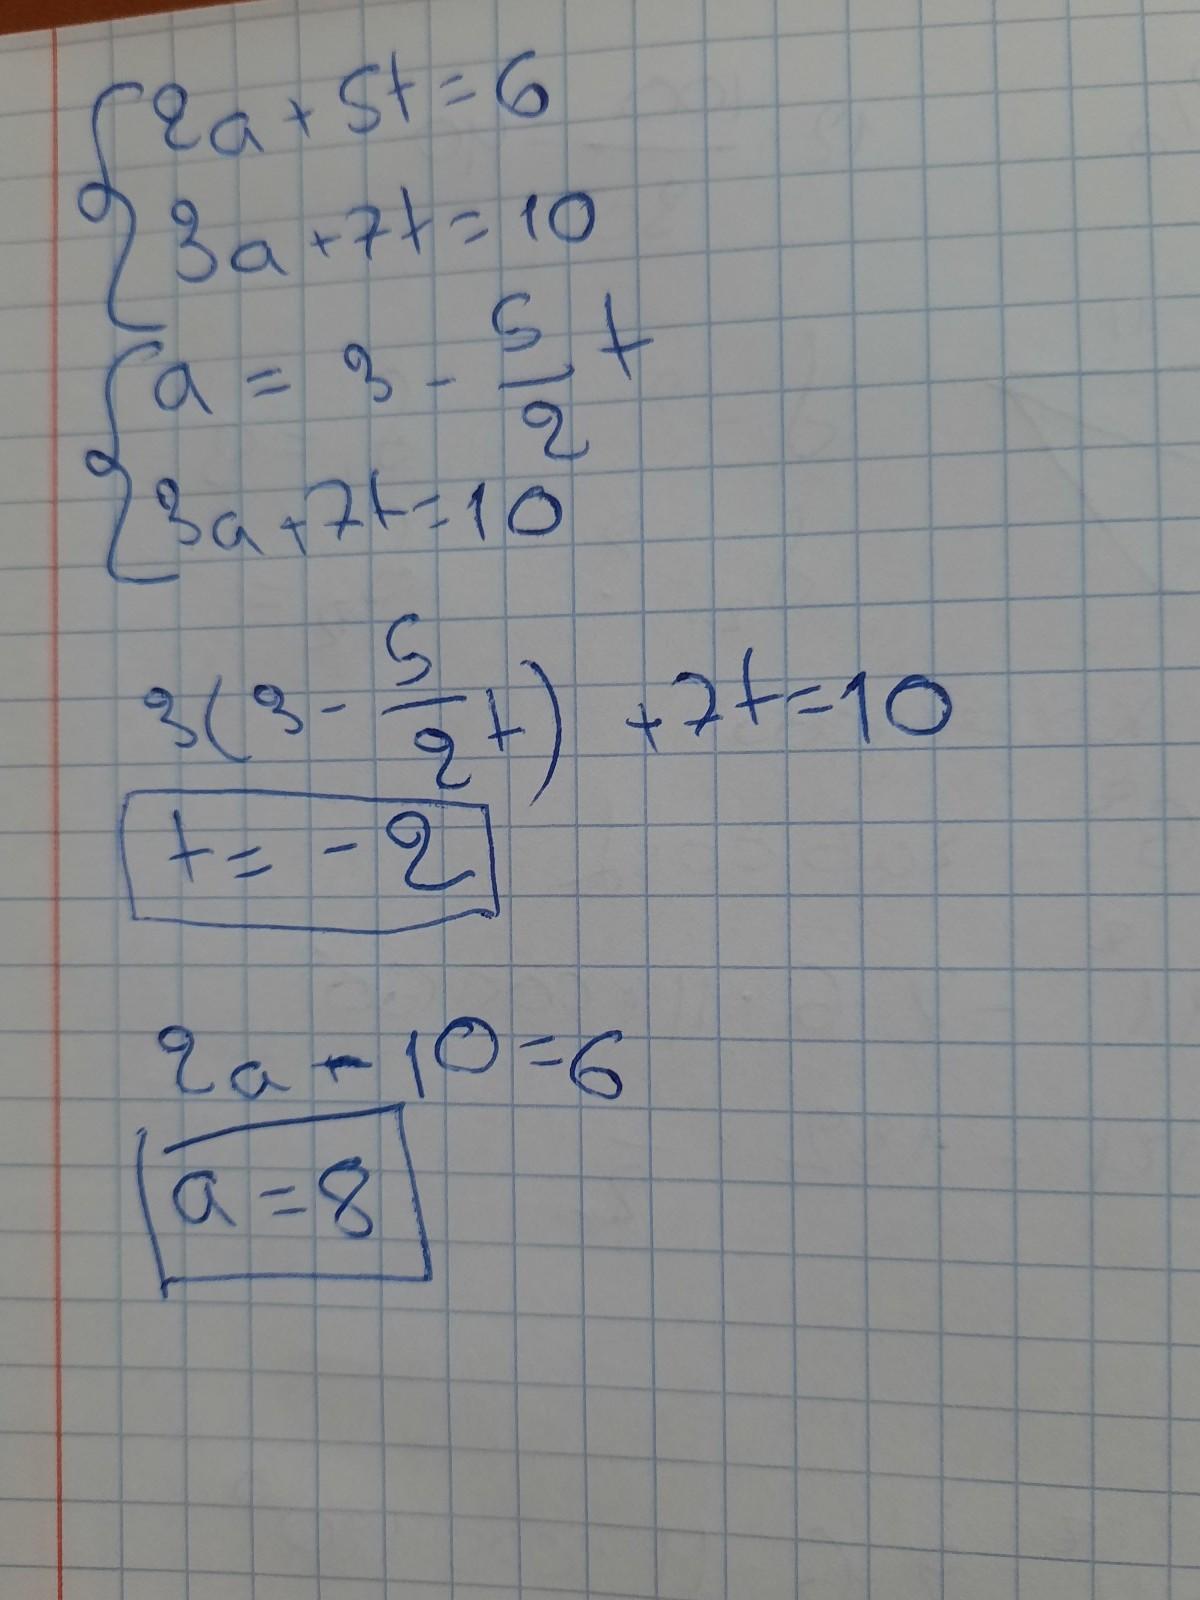 2a + 5t = 6
3a + 7t = 10
a = 3 - 5/2 t
3a + 7t = 10
3(3 - 5/2 t) + 7t = 10
t = - 2
2a - 10 = 6
a = 8